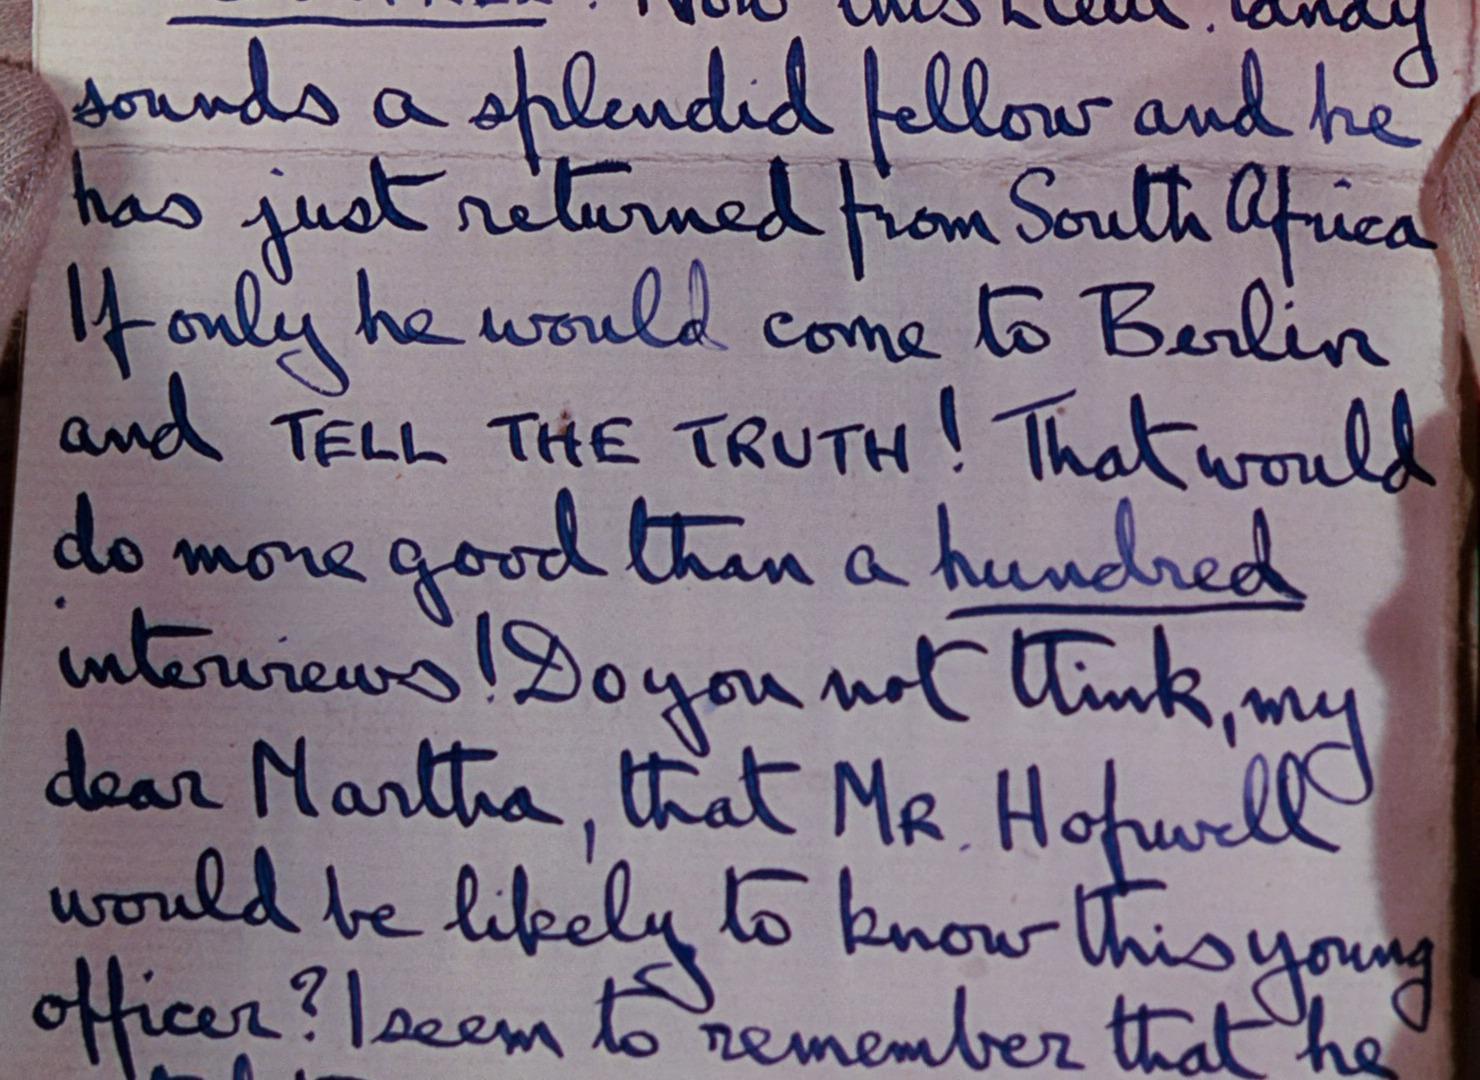 Now this Lieut. Tandy
sounds a splendid fellow and he
has just returned from South Africa
If only he would come to Berlin
and TELL THE TRUTH! That would
do more good than a hundred
interviews! Do you not think, my
dear Martha, that MR. Hopwell
would be likely to know this young
officer? I seem to remember that he